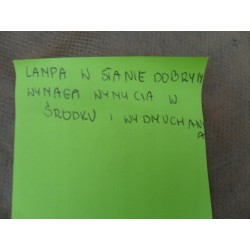 LAMPA W STANIE DOBRYM
WYMAGA WYMYCIA W
ŚRODKU I WYDMUCHAN
A